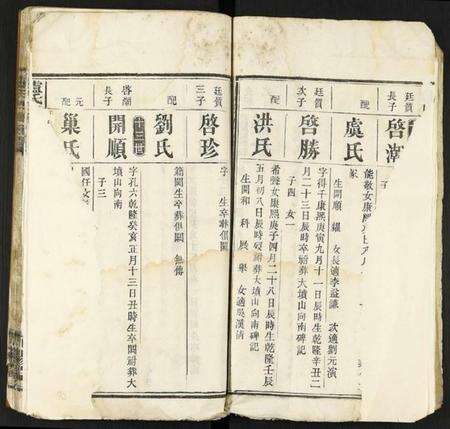 廷質
長子
啓
能敬女康熙
配
虞氏
生開順 女長適李益謙 次適劉元演
廷質
次子
啓勝
字得千康熙庚寅九月十一日辰時生乾隆辛丑二
月二十三日辰時卒葬大墳山向南碑記
子四 女一
配
洪氏
女康熙庚子四月二十八日辰時生乾隆壬辰
五月初八日辰時歿葬大墳山向南碑記
生開和 科 展 舉 女適吳漢清
廷質
三子
啓珍
字 生卒葬俱闕
配
劉氏
生卒葬俱闕 無傳
啓
長子
開順
字孔六乾隆癸亥五月十三日丑時生卒闕葬大
墳山向南
子三
元
配
巢氏
國任女